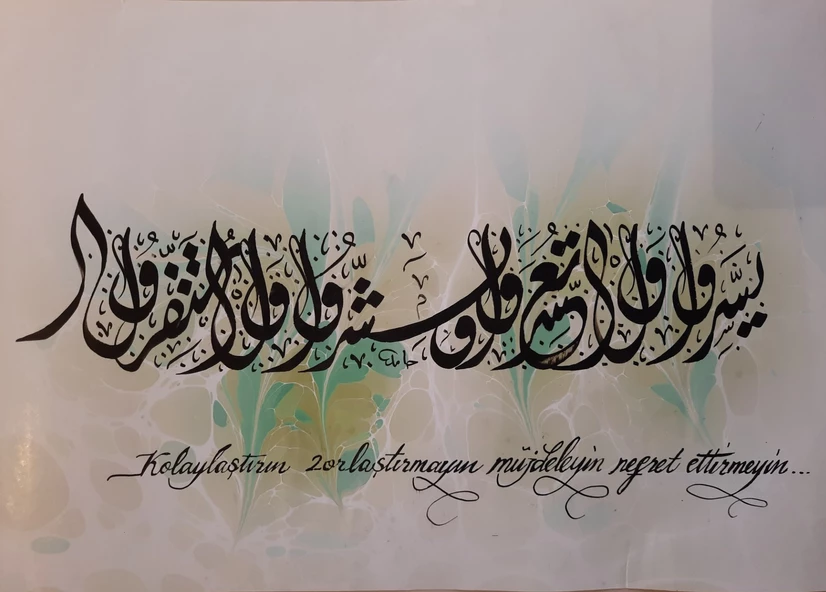 يسروا ولا تعسروا وبشروا ولا تنفروا
Kolaylaştırın Zorlaştırmayın müjdeleyin nefret ettirmeyin...